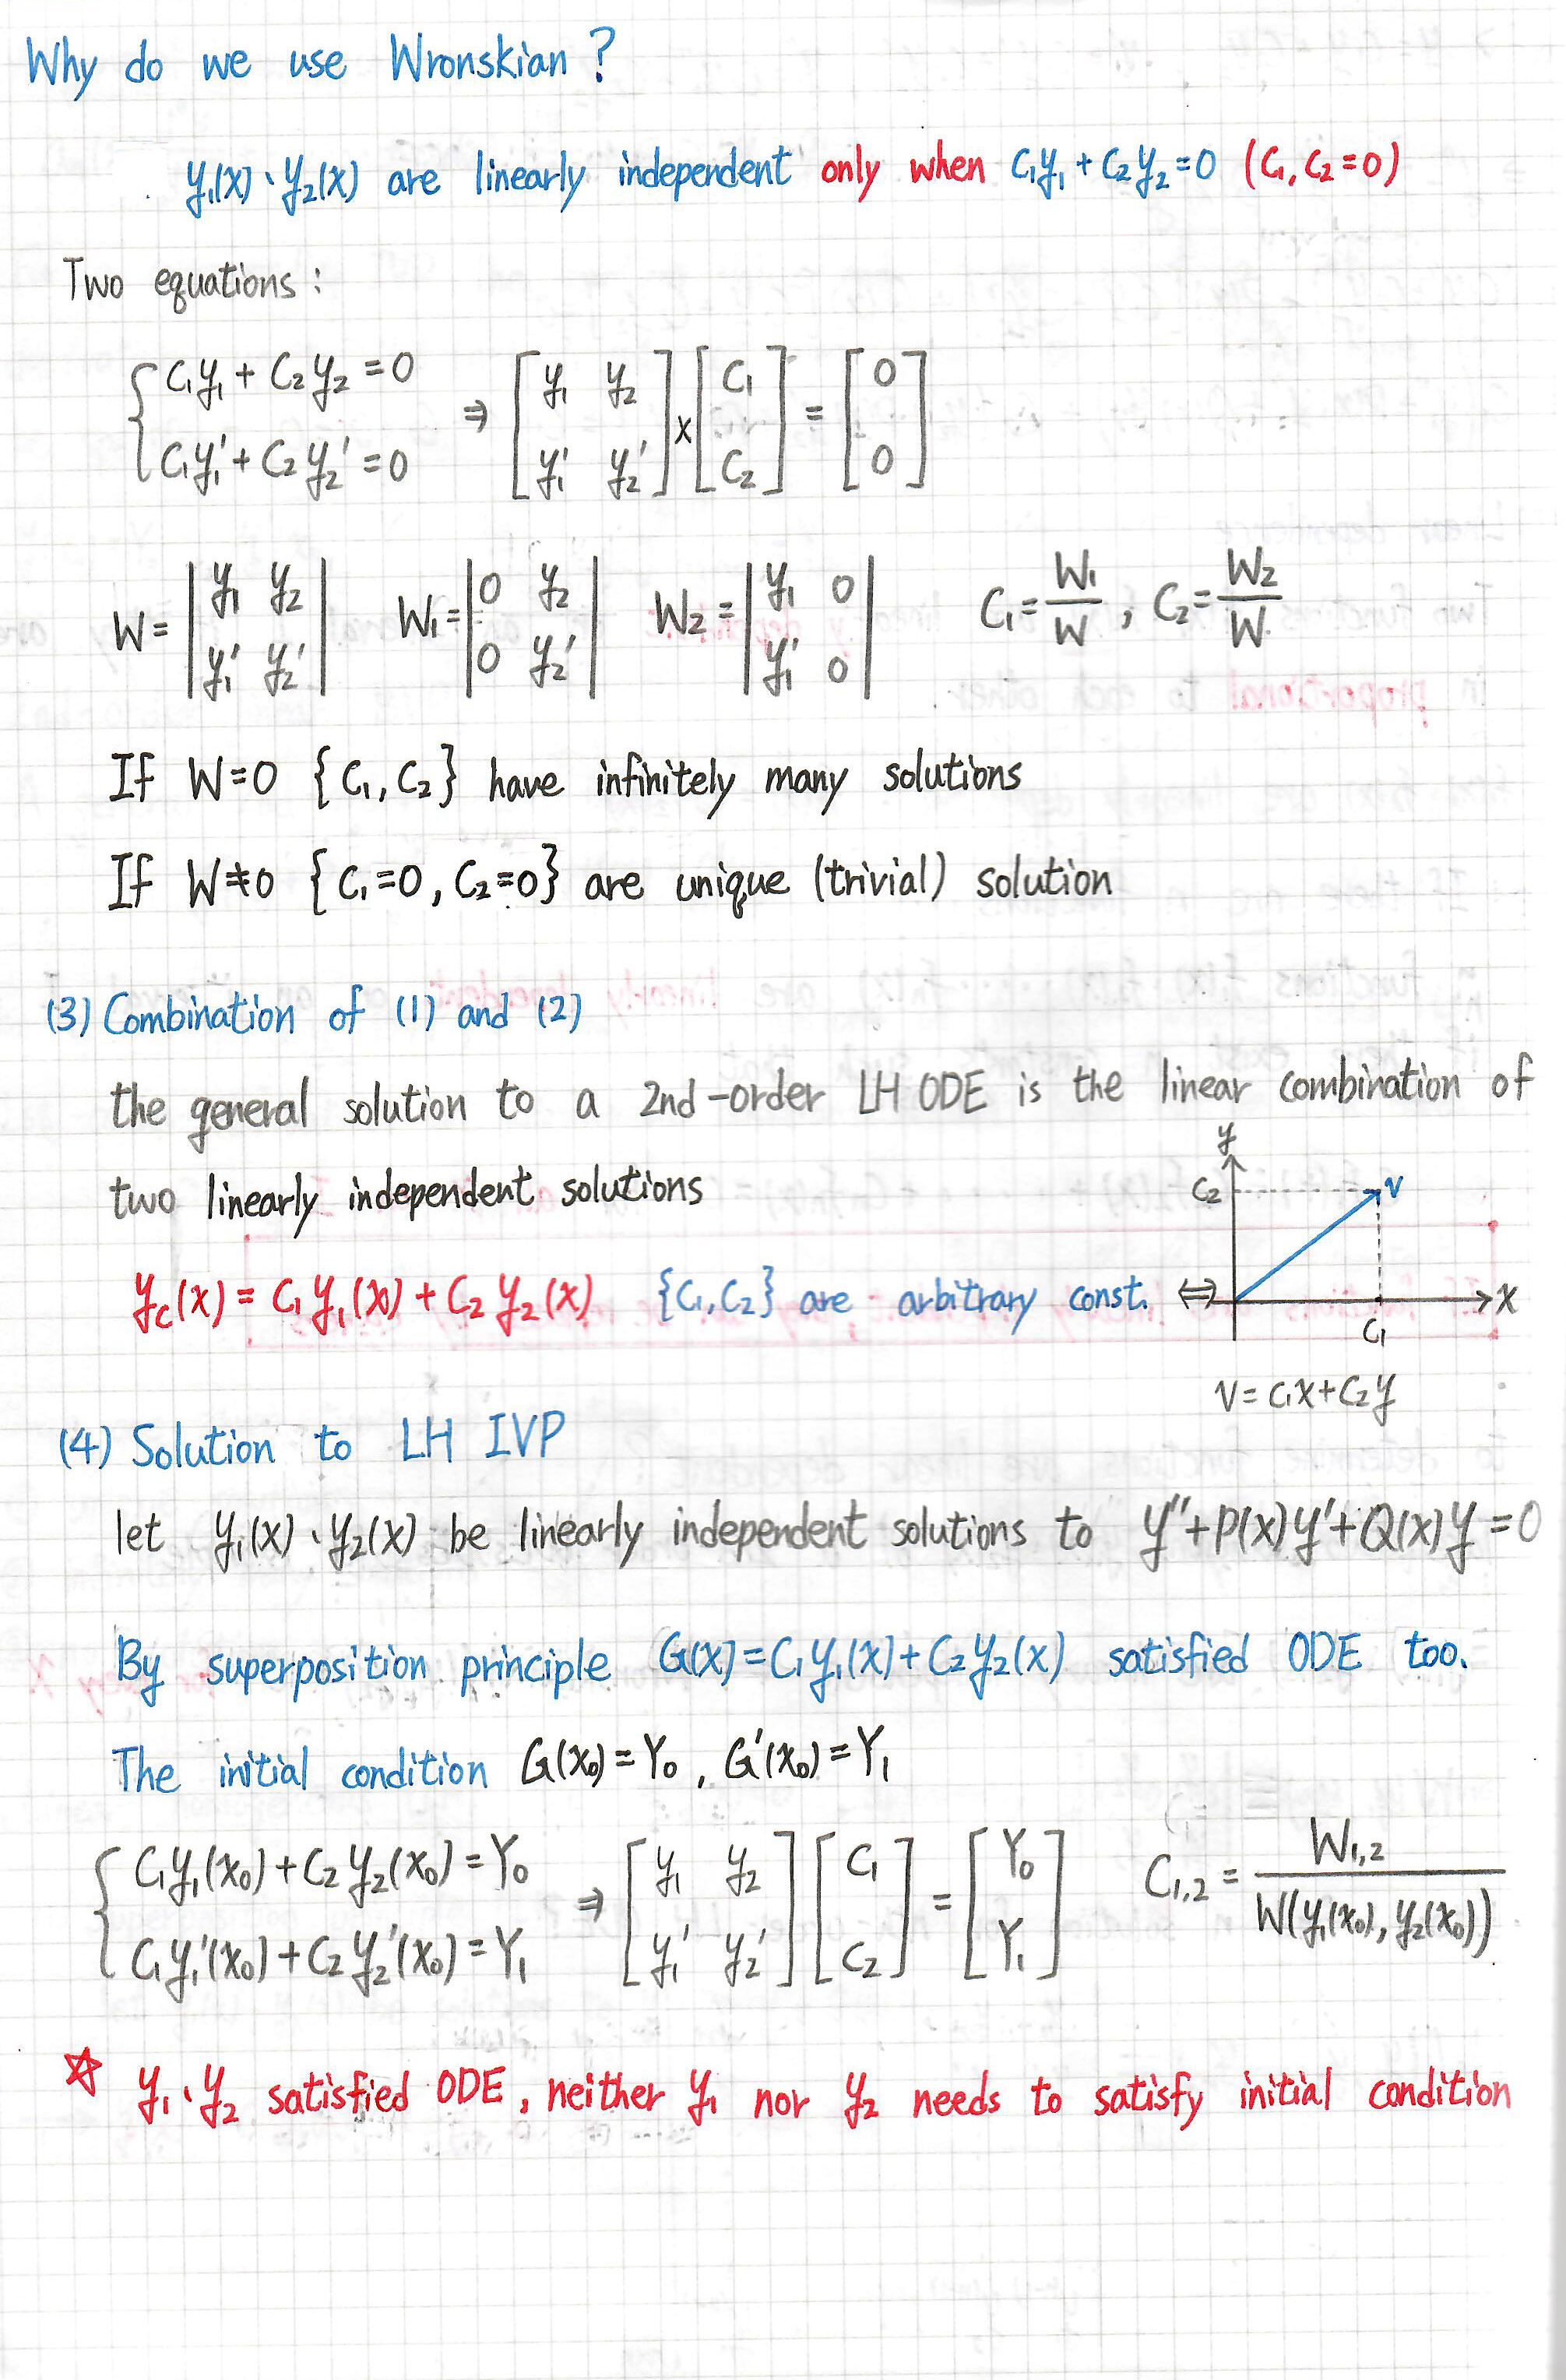 Why do we use Wronskian?
y₁(x)、y₂(x) are linearly independent only when C₁y₁+C₂y₂=0 (C₁,C₂=0)
Two equations:
{ C₁y₁+C₂y₂=0 ⇒ [y₁ y₂] × [C₁] = [0]
C₁y₁'+C₂y₂'=0 [y₁' y₂'] [C₂] [0]
W= |y₁ y₂| W₁= |0 y₂| W₂= |y₁ 0| C₁=W₁/W , C₂=W₂/W
|y₁' y₂'| |0 y₂'| |y₁' 0|
If W=0 {C₁,C₂} have infinitely many solutions
If W≠0 {C₁=0,C₂=0} are unique (trivial) solution
(3) Combination of (1) and (2)
the general solution to a 2nd-order LH ODE is the linear combination of
two linearly independent solutions
y_c(x)=C₁y₁(x)+C₂y₂(x) {C₁,C₂} are arbitrary const. ⇔
y
C₂ v
x
C₁
v=C₁x+C₂y
(4) Solution to LH IVP
let y₁(x)、y₂(x) be linearly independent solutions to y''+P(x)y'+Q(x)y=0
By superposition principle G(x)=C₁y₁(x)+C₂y₂(x) satisfied ODE too.
The initial condition G(x₀)=Y₀, G'(x₀)=Y₁
{ C₁y₁(x₀)+C₂y₂(x₀)=Y₀ ⇒ [y₁ y₂] [C₁] = [Y₀] C₁,₂= W₁,₂/W(y₁(x₀),y₂(x₀))
C₁y₁'(x₀)+C₂y₂'(x₀)=Y₁ [y₁' y₂'] [C₂] [Y₁]
☆ y₁、y₂ satisfied ODE, neither y₁ nor y₂ needs to satisfy initial condition